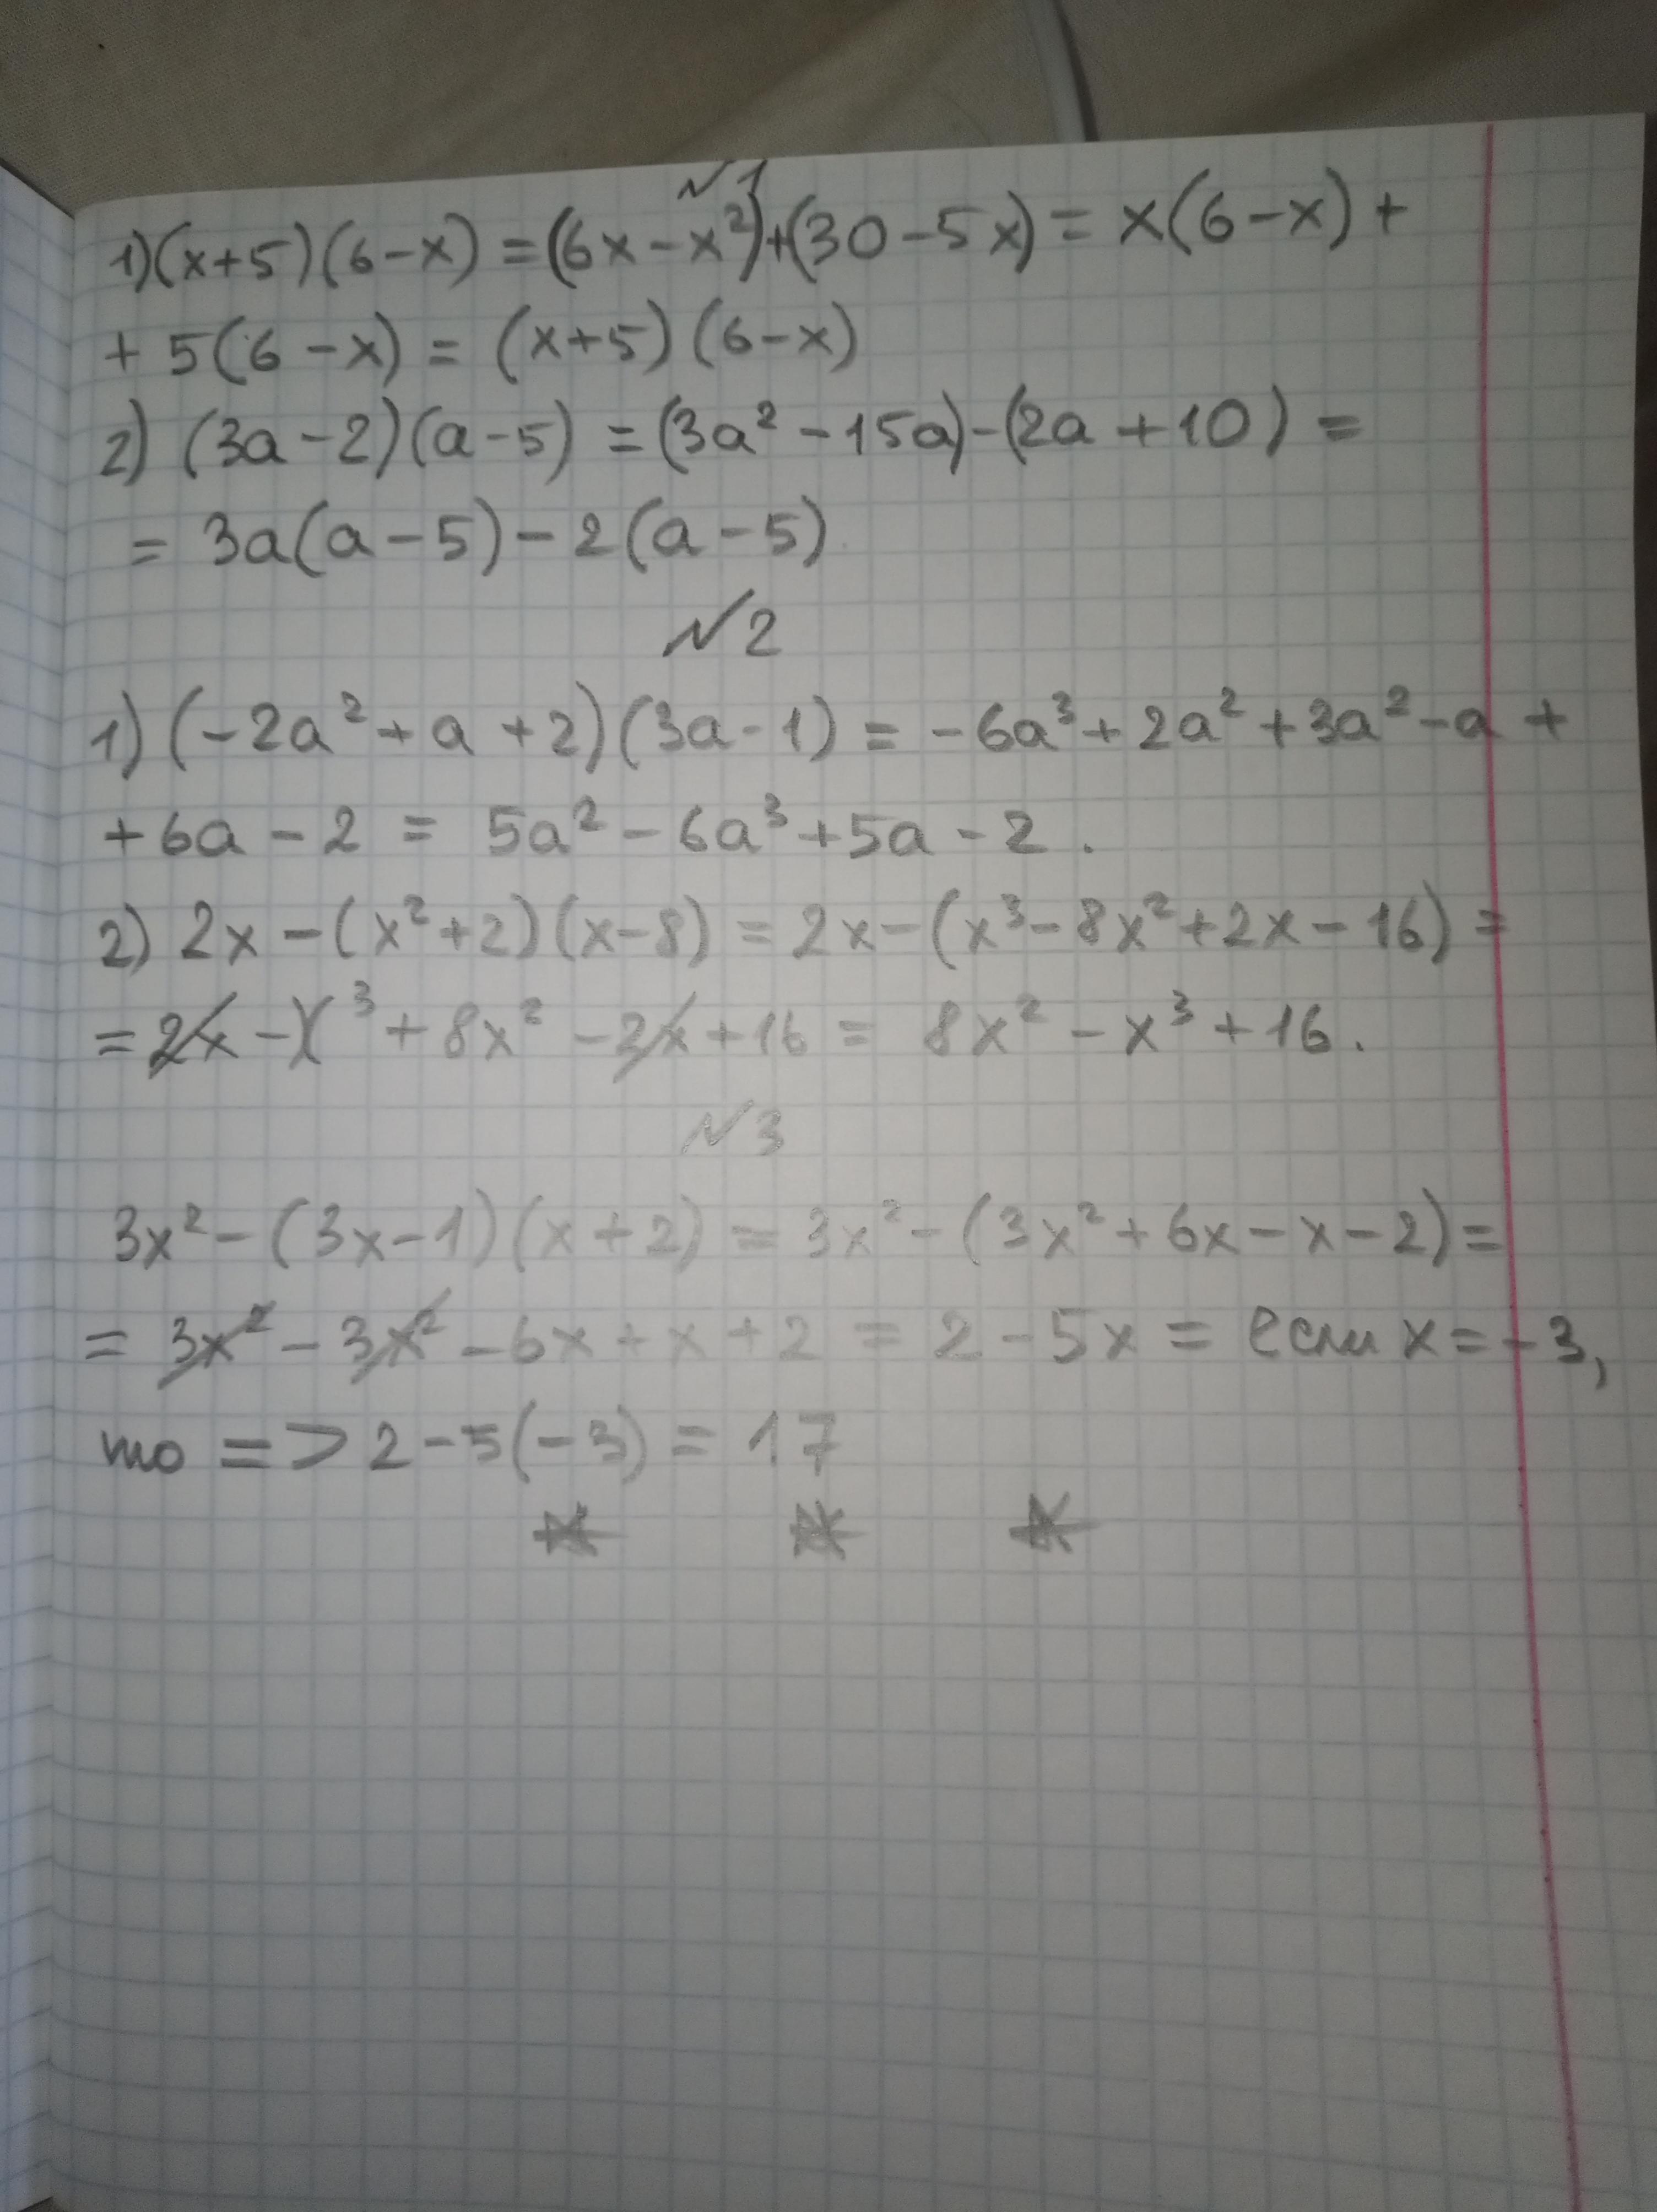 №1
1)(x+5)(6-x) = (6x-x²)+(30-5x) = x(6-x)+
+ 5(6-x) = (x+5)(6-x)
2) (3a-2)(a-5) = (3a²-15a)-(2a+10) =
= 3a(a-5)-2(a-5)
№2
1) (-2a²+a+2)(3a-1) = -6a³+2a²+3a²-a+
+6a-2 = 5a²-6a³+5a-2.
2) 2x-(x²+2)(x-8) = 2x-(x³-8x²+2x-16) =
= 2x-x³+8x²-2x+16 = 8x²-x³+16.
№3
3x²-(3x-1)(x+2) = 3x²-(3x²+6x-x-2) =
= 3x²-3x²-6x+x+2 = 2-5x = если x=-3,
то => 2-5(-3) = 17